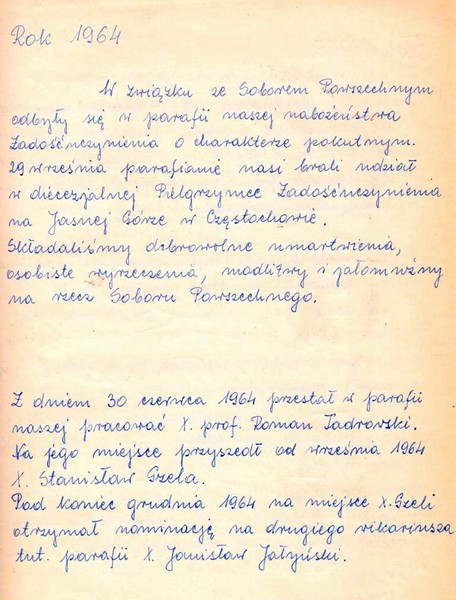 Rok 1964
W związku ze Soborem Powszechnym
odbyły się w parafii naszej nabożeństwa
Zadośćuczynienia o charakterze pokutnym.
29 września parafianie nasi brali udział
w diecezjalnej Pielgrzymce Zadośćuczynienia
na Jasnej Górze w Częstochowie.
Składaliśmy dobrowolne umartwienia,
osobiste wyrzeczenia, modlitwy i jałomużny
na rzecz Soboru Powszechnego.
Z dniem 30 czerwca 1964 przestał w parafii
naszej pracować X. prof. Roman
Na jego miejsce przyszedł od września 1964
X. Stanisław Gzela.
Pod koniec grudnia 1964 na miejsce X. Gzeli
otrzymał nominację na drugiego wikariusza
tut. parafii X.